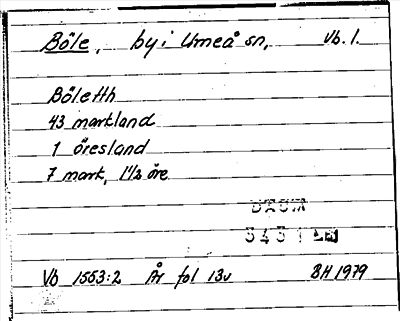 Böle, by i Umeå sn, Vb. l.
Böleth
43 markland
1 öresland
7 mark, 1 1/2 öre
DAUM
3431
Vb 1553:2 År fol 13v BH 1979